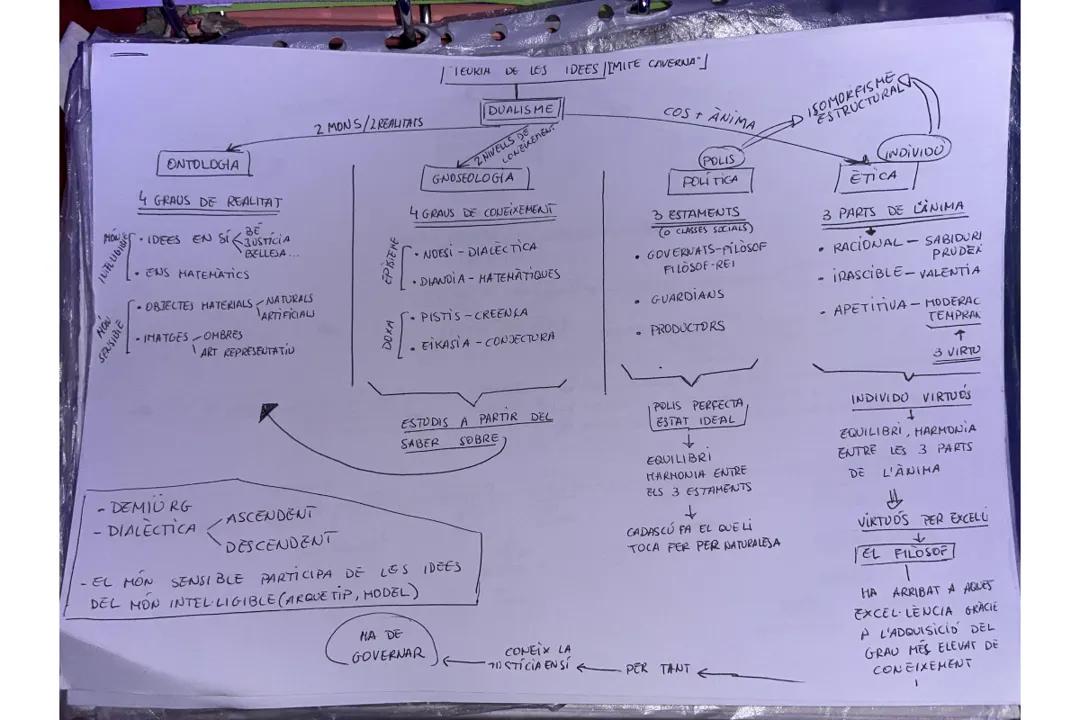 "TEORIA DE LES IDEES / [MITE CAVERNA"]
DUALISME
2 MONS/2 REALITATS
2 NIVELLS DE
CONEIXEMENT
COS + ÀNIMA
ISOMORFISME
ESTRUCTURAL
ONTOLOGIA
4 GRAUS DE REALITAT
MÓN
· IDEES EN SÍ
BÉ
JUSTÍCIA
BELLESA...
· ENS MATEMÀTICS
MÓN
SENSIBLE
· OBJECTES MATERIALS
NATURALS
ARTIFICIALS
· IMATGES
OMBRES
ART REPRESENTATIU
GNOSEOLOGIA
4 GRAUS DE CONEIXEMENT
EPISTEME
· NOESI - DIALÈCTICA
· DIANOIA - MATEMÀTIQUES
DOXA
· PISTIS - CREENÇA
· EIKASIA - CONJECTURA
ESTUDIS A PARTIR DEL
SABER SOBRE
POLIS
POLÍTICA
3 ESTAMENTS
(O CLASSES SOCIALS)
· GOVERNATS-FILÒSOF
FILÒSOF-REI
· GUARDIANS
· PRODUCTORS
POLIS PERFECTA
ESTAT IDEAL
EQUILIBRI
HARMONIA ENTRE
ELS 3 ESTAMENTS
CADASCÚ FA EL QUE LI
TOCA FER PER NATURALESA
INDIVIDO
ÈTICA
3 PARTS DE L'ÀNIMA
· RACIONAL - SABIDURI
PRUDEN
· IRASCIBLE - VALENTIA
· APETITIVA - MODERAC
TEMPRAN
3 VIRTU
INDIVIDO VIRTUÓS
EQUILIBRI, HARMONIA
ENTRE LES 3 PARTS
DE L'ÀNIMA
VIRTUÓS PER EXCEL·L
EL FILÒSOF
HA ARRIBAT A AQUES
EXCEL·LÈNCIA GRÀCIE
A L'ADQUISICIÓ DEL
GRAU MÉS ELEVAT DE
CONEIXEMENT
PER TANT
CONEIX LA
JUSTÍCIA EN SÍ
HA DE
GOVERNAR
- DEMIÜRG
- DIALÈCTICA
ASCENDENT
DESCENDENT
- EL MÓN SENSIBLE PARTICIPA DE LES IDEES
DEL MÓN INTEL·LIGIBLE (ARQUETIP, MODEL)